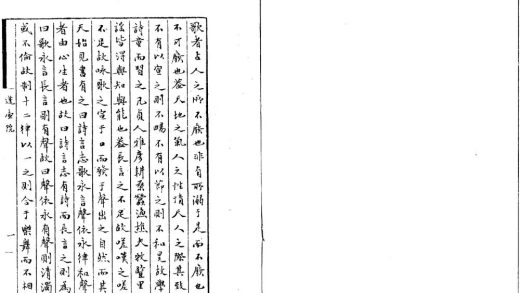 歌者古人之所不廢也非有所溺于是而不廢也
不可廢也蓋天地之氣人之性情天人之際其致
不有以宣之則不暢不有以節之則不和是故學
詩童而習之凡貞人雅彥耕桑蠶漁樵夫牧豎里
謠皆得與知與能也蓋長言之不足故嗟嘆之嗟
不足故咏歌之宣于口而發于聲出之自然而其
天始見書有之曰詩言志歌永言聲依永律和聲
者由心生者也故曰詩言志有詩而長言之則為
曰歌永言長言則有聲故曰聲依永有聲則清濁
或不倫故制十二律以一之則合于樂舞而不相